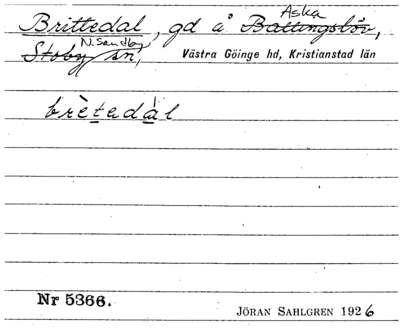 Aska
Brittedal, gd å Ballingslöv,
N. Sandby
Stoby sn, Västra Göinge hd, Kristianstad län
brètedàl
Nr 5366.
JÖRAN SAHLGREN 1926